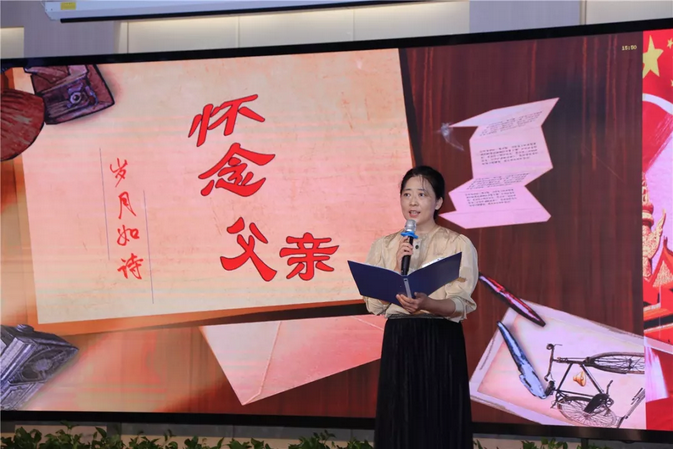 怀念父亲
岁月如诗
15:50